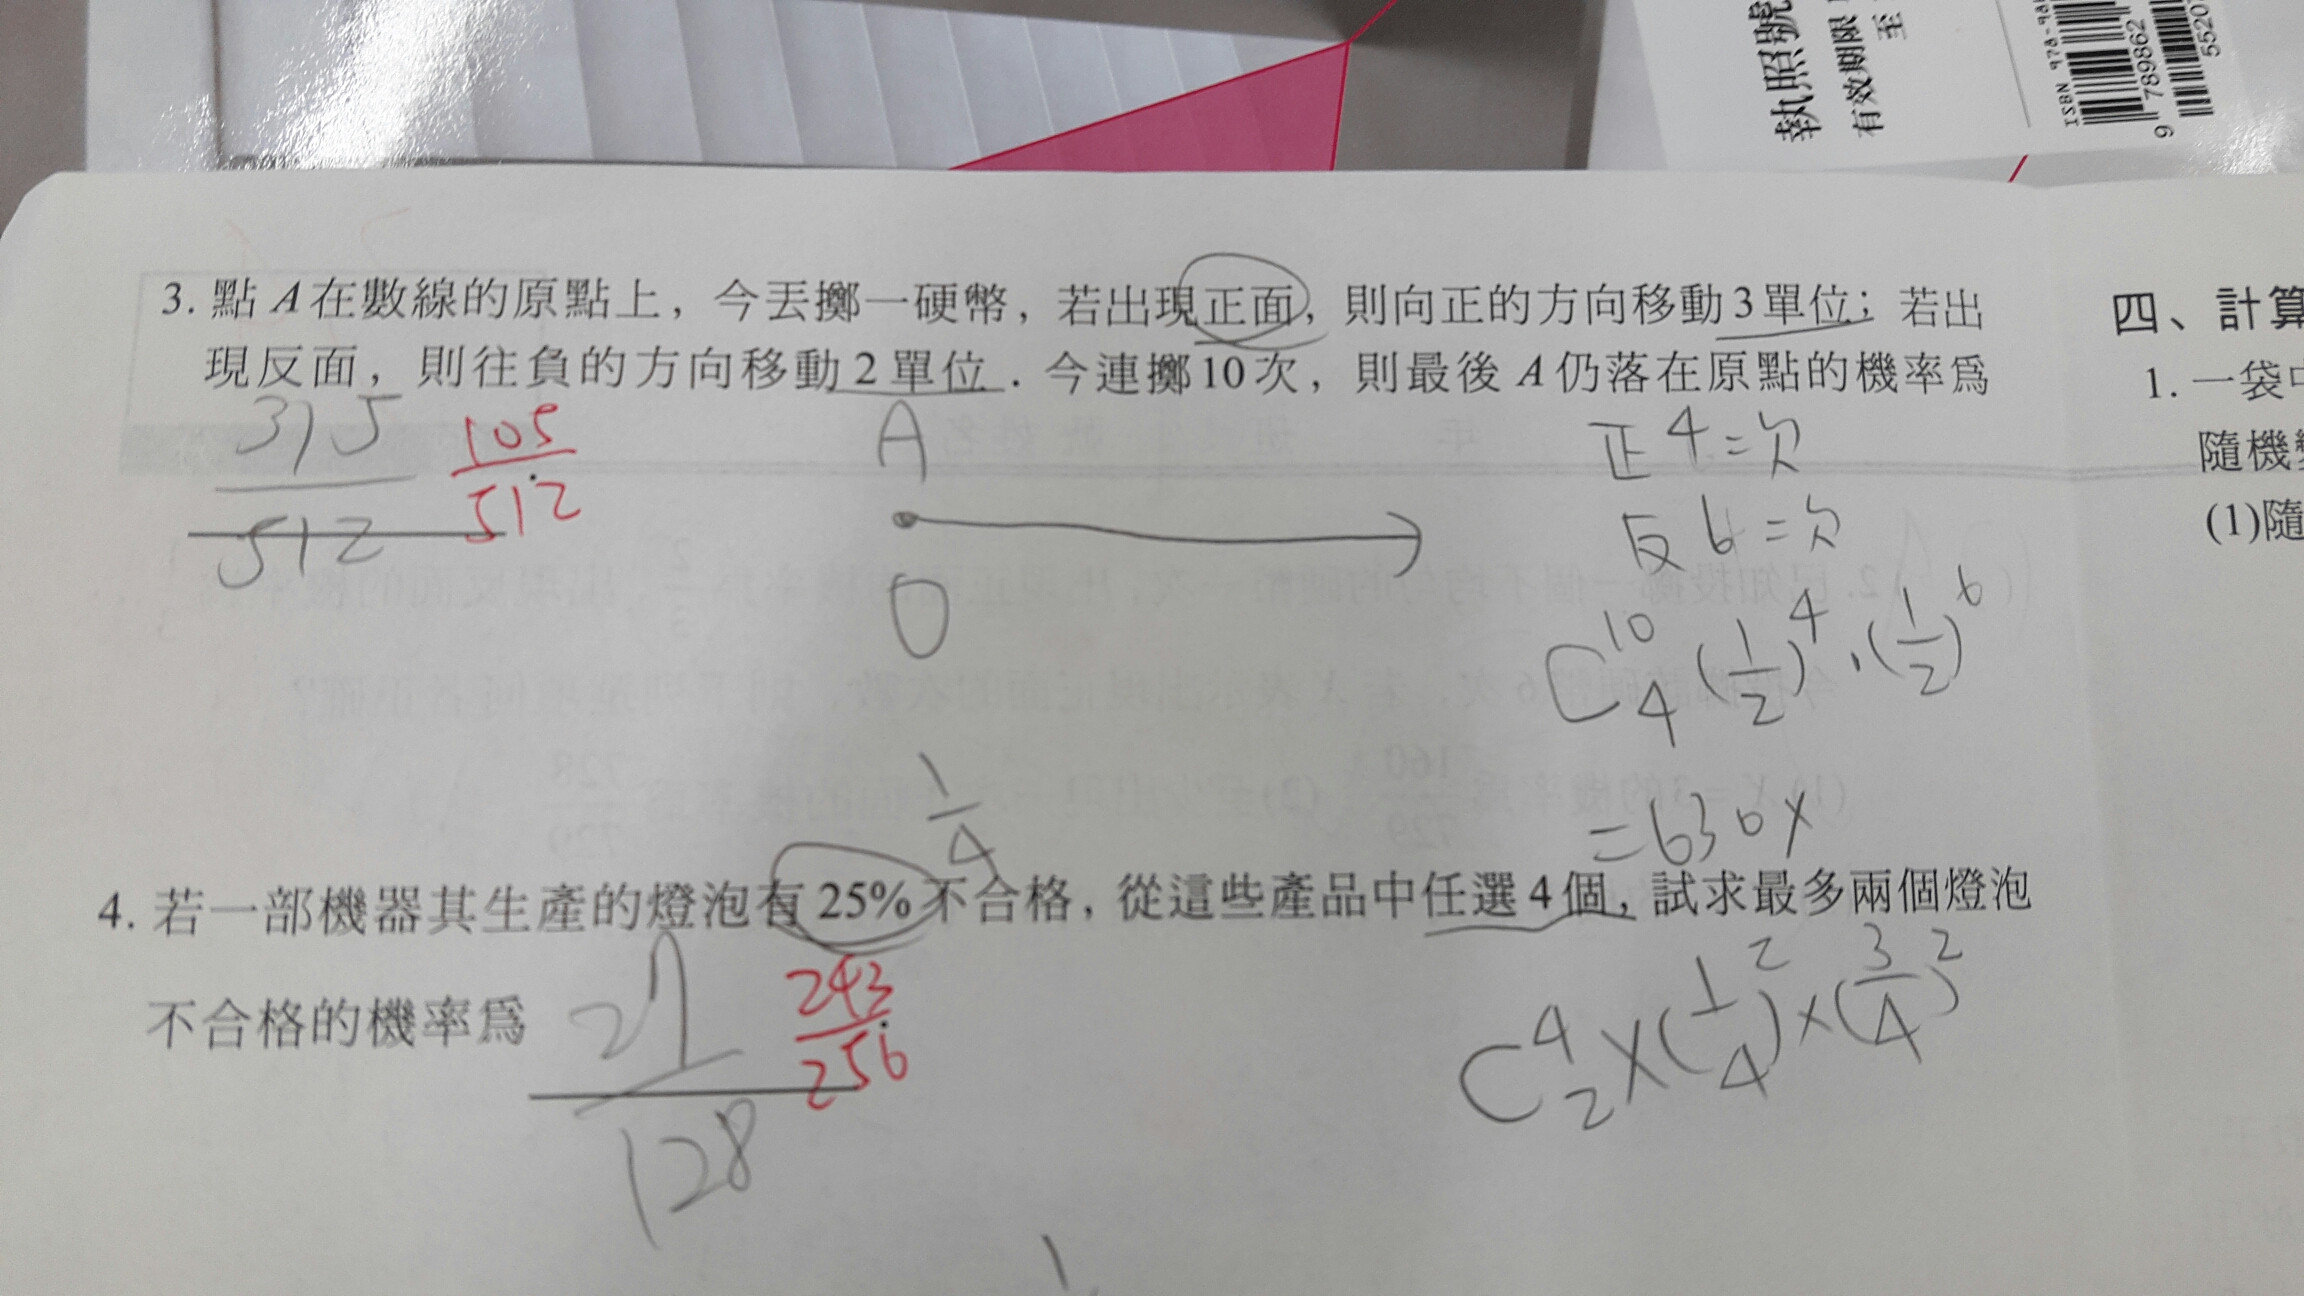 執照號
有效期限
至
ISBN 978-98
9 789862
5520
3. 點A在數線的原點上，今丟擲一硬幣，若出現正面，則向正的方向移動3單位；若出
現反面，則往負的方向移動2單位．今連擲10次，則最後A仍落在原點的機率為
315/512
105/512
A
O
正4=次
反6=次
C^10_4 (1/2)^4 · (1/2)^6
=630×
1/4
4. 若一部機器其生產的燈泡有25%不合格，從這些產品中任選4個，試求最多兩個燈泡
不合格的機率為
27/128
243/256
C^4_2×(1/4)^2×(3/4)^2
四、計算
1. 一袋中
隨機
(1)隨